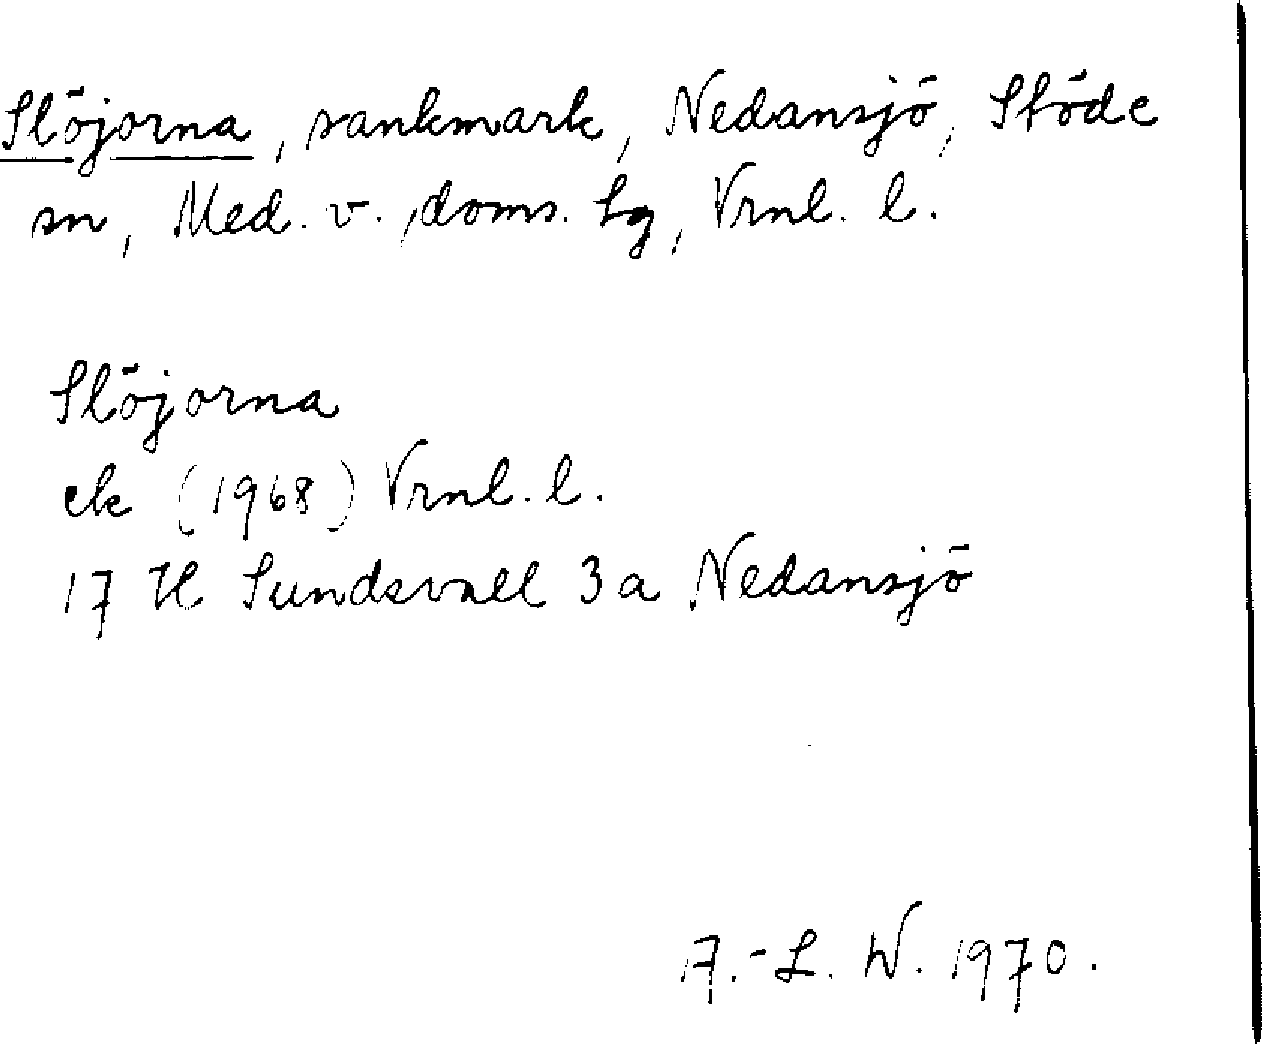 Slöjorna, sankmark, Nedansjö, Stöde
sn, Med. v. doms. lg, Vrnl. l.
Slöjorna
ek (1968) Vrnl. l.
17 H Sundsvall 3 a Nedansjö
A.-L. W. 1970.